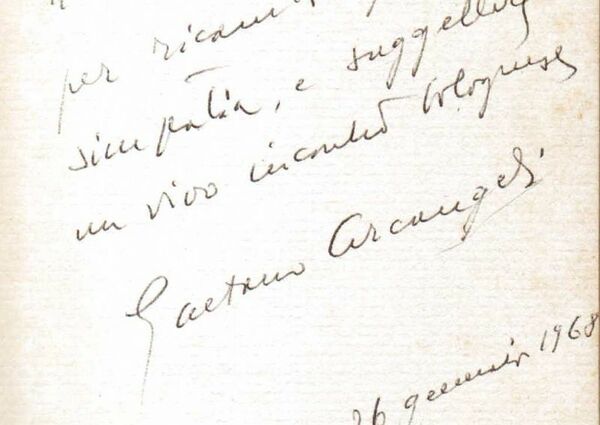 per
simpatia, e suggellare
un vivo incontro bolognese
Gaetano Arcangeli
26 gennaio 1968